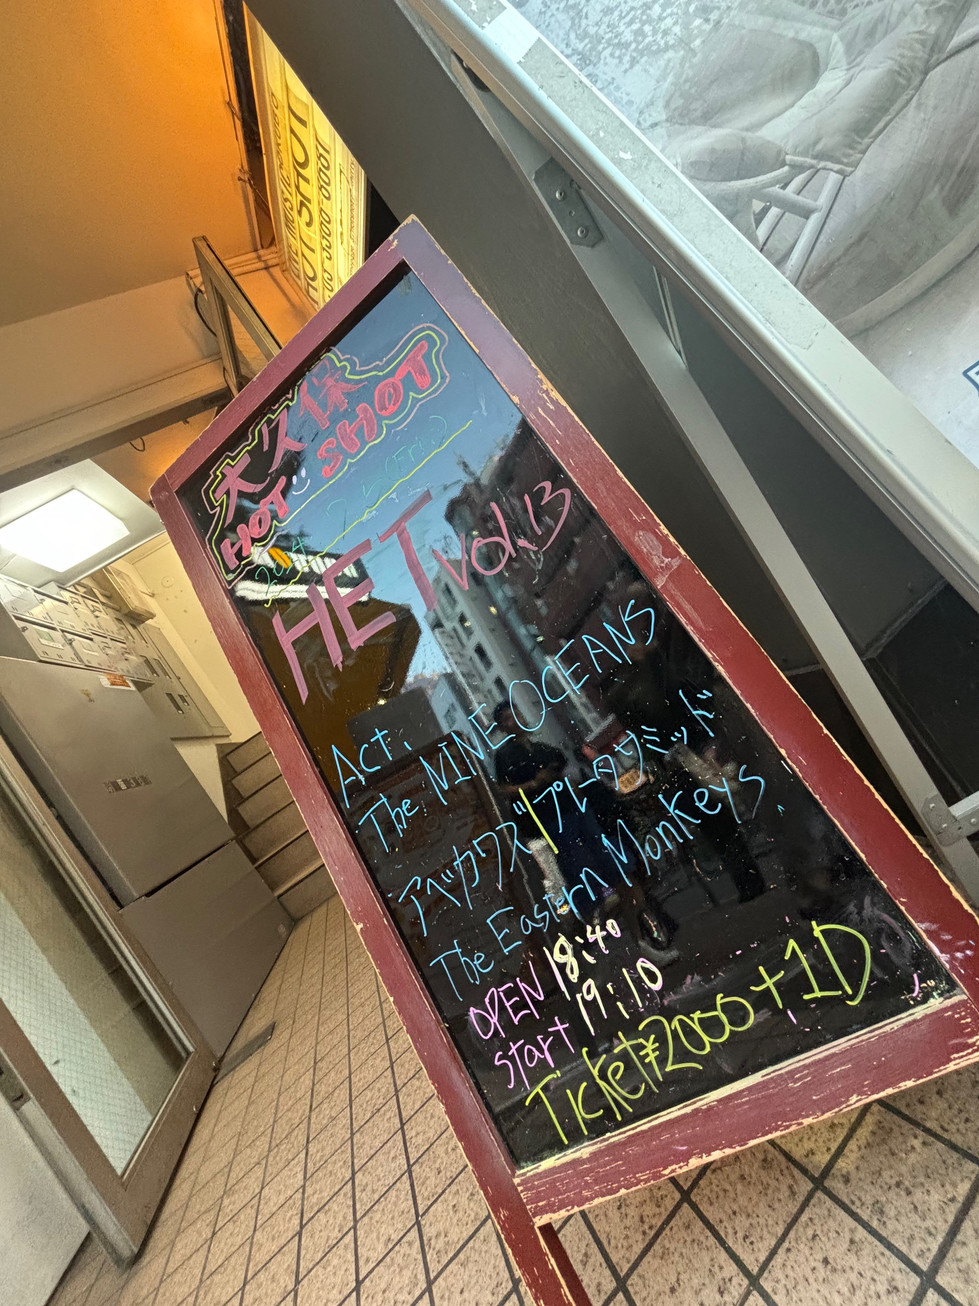 HOT SHOT
大久保
HOT SHOT
HET vol.13
Act.
The NINE OCEANS
アベカワズ/プレータウミッド
The Eastern Monkeys
OPEN 18:40
start 19:10
Ticket ¥2000+1D